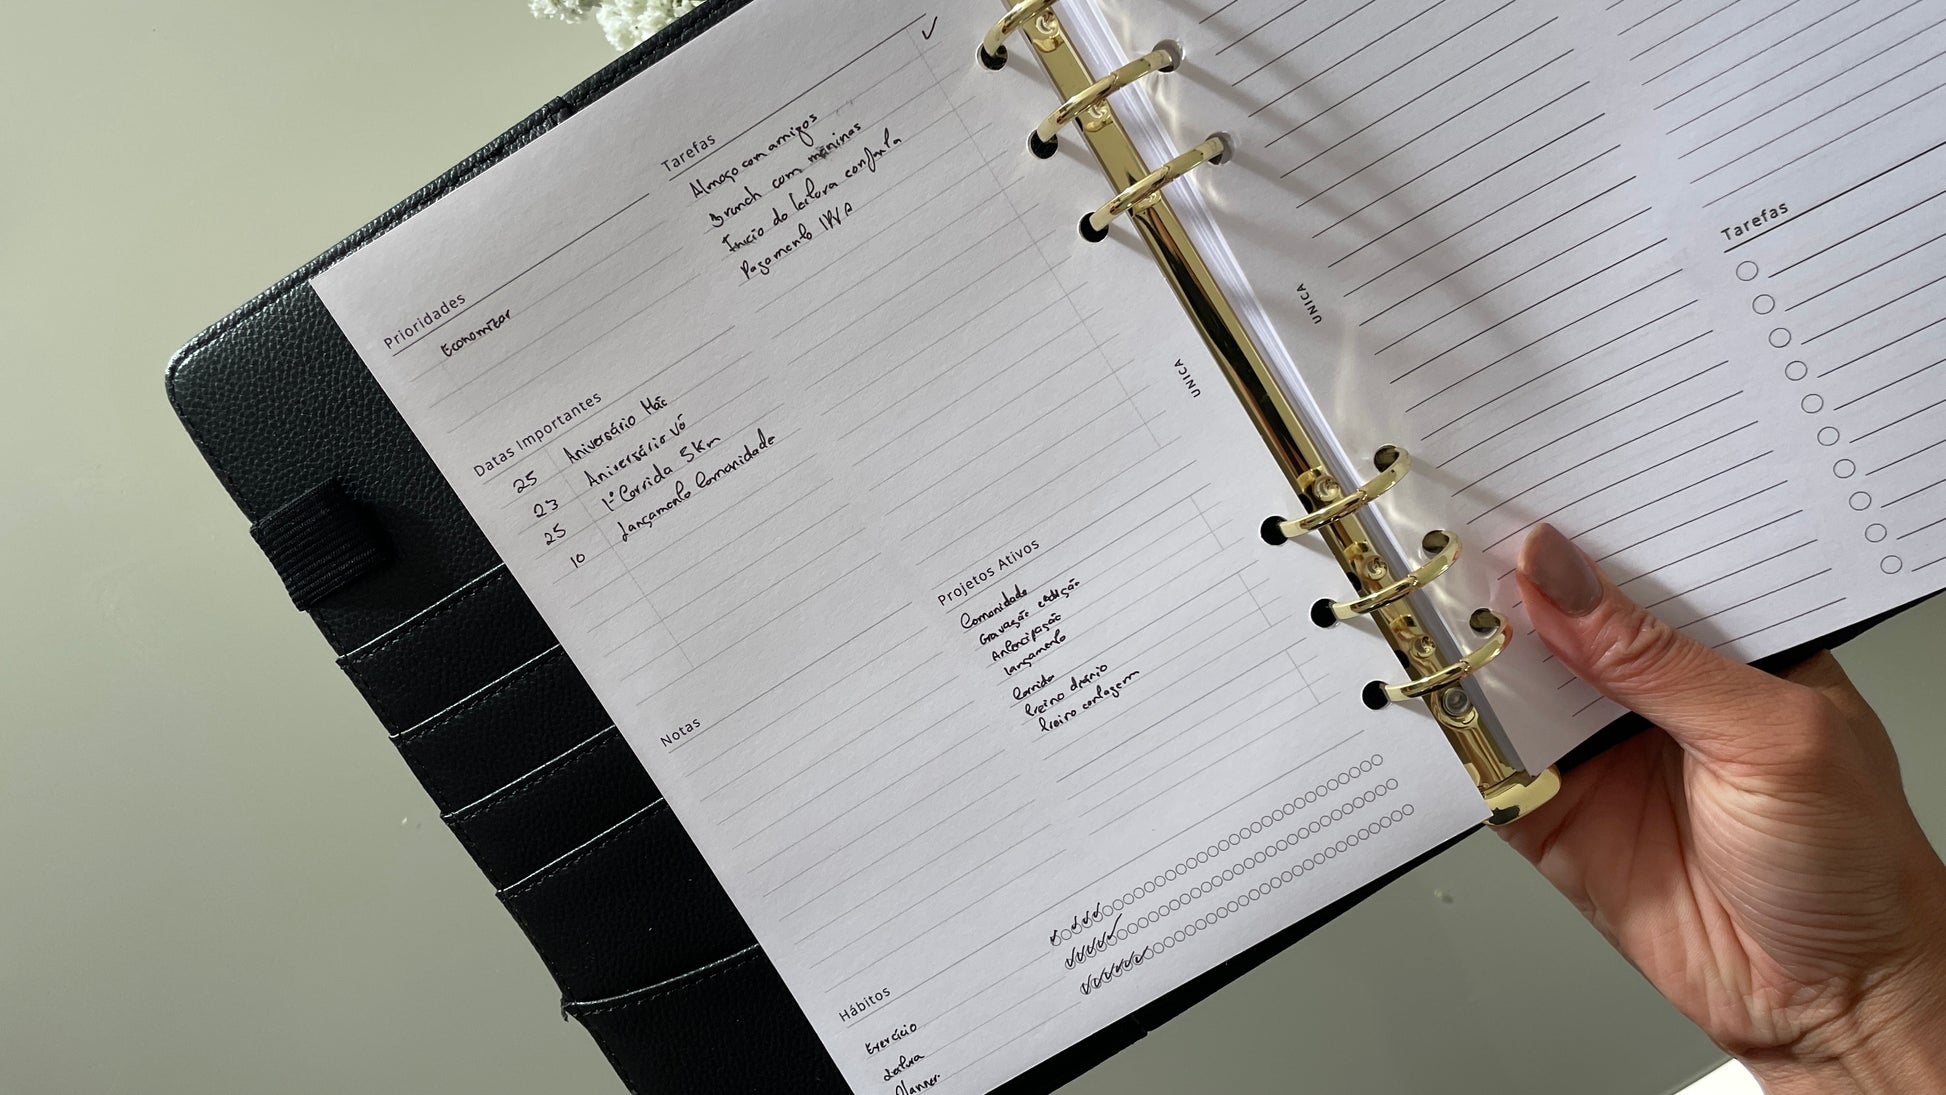 Prioridades
Economizar
Datas Importantes
25 Aniversário Mãe
23 Aniversário Vó
25 1ª Corrida 5Km
10 Lançamento Comunidade
Notas
Tarefas
Almoço com amigos
Brunch com meninas
Início da leitura conjunta
Pagamento IPVA
Projetos Ativos
Comunidade
Gravação e edição
Antecipação
Lançamento
Corrida
treino diário
treino contagem
Hábitos
Exercício
Leitura
Planner
UNICA
UNICA
Tarefas